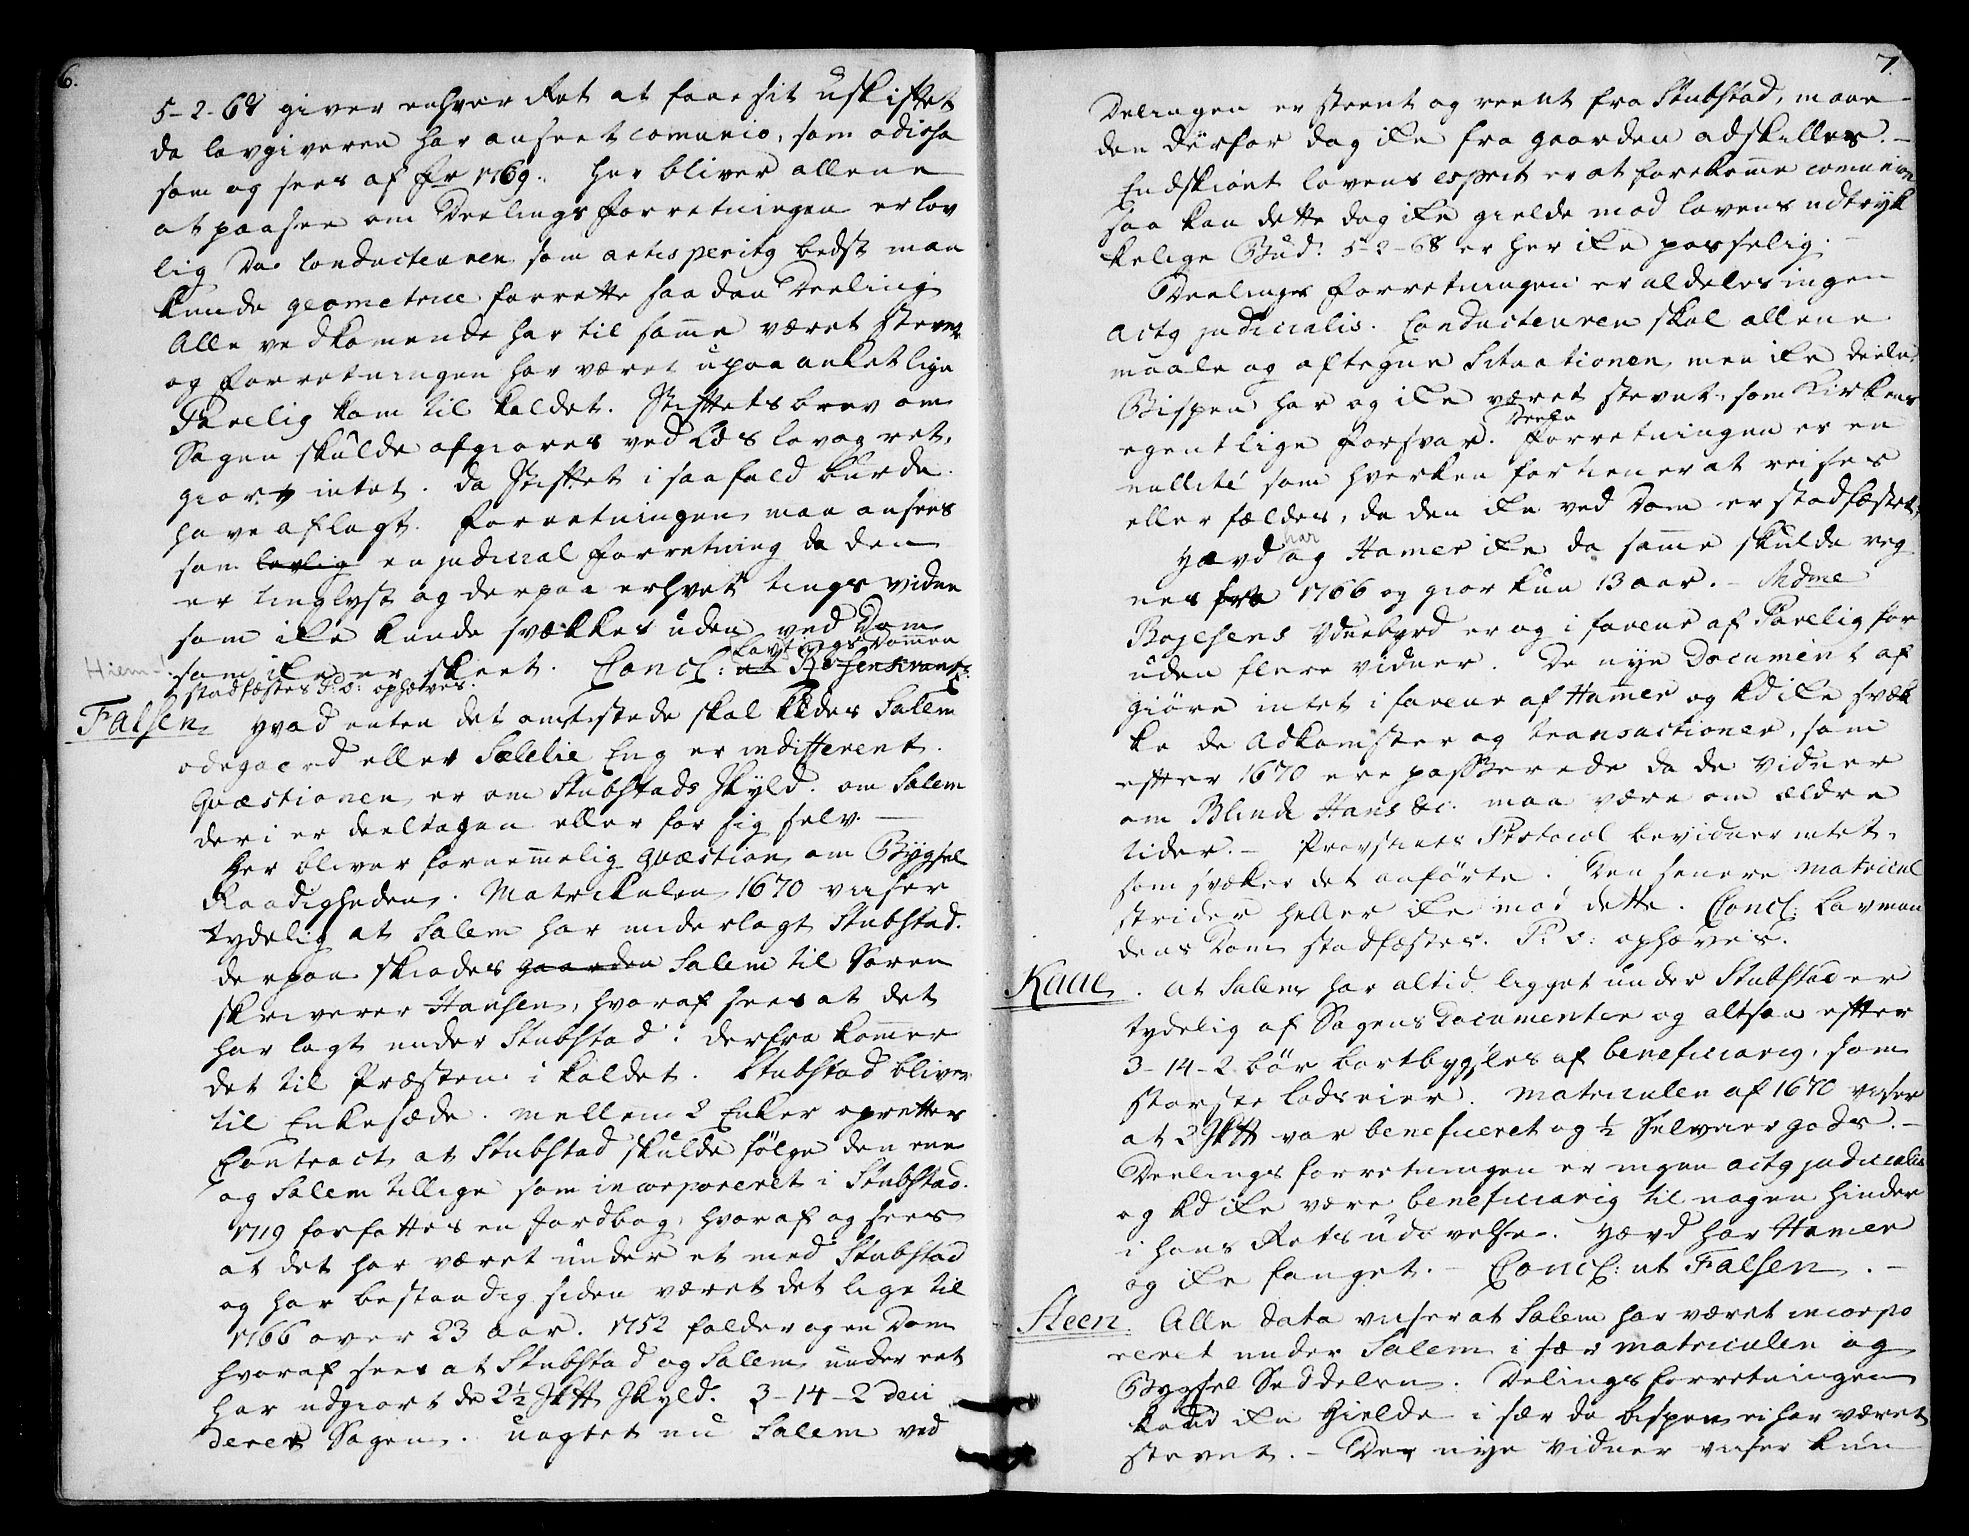 6.
5-2-68 giver enhver Ret at faae sit uskiftet
da lovgiveren har anseet comunio, som odiosa
som og sees af fr 1769. her bliver allene
at paasee om Deelings forretningen er lov
lig Da Conducteuren som artis peritg bedst maa
kunde geometrice forrette saadan Deeling
Alle vedkomende har til samme været stevnt
og forretningen har været upaaanket lige
Parelig kom til kaldet. Stiftets brev om
Sagen skulde afgiøres ved Lds lov og ret,
giør intet. da Stiftet i saa fald burde
have aflagt. forretningen maa ansees
som lovlig en judicial forretning da den
er tinglyst og derpaa erhvet tings vidne
som ike kunde svækkes uden ved Dom
som ike er skeet. Concl: ut Rosenkrantz Lavtings Dommen
Hiem-! stadfæstes P: v: ophæves.
Falsen hvad enten det omtvistede skal kldes Salem
ødegaard eller Sælelie Eng er indifferent.
Qvæstionen er om Stubstads Skyld. om Salem
deri er deeltagen eller for sig selv. —
Her bliver fornemmelig qvæstion om Bygsel
Raadigheden. Matrikulen 1670 viiser
tydelig at Salem har underlagt Stubstad.
derpaa skiødes gaarden Salem til Søren
skriverer Hansen, hvoraf sees at det
har lagt under Stubstad. derfra kommer
det til Præsten i kaldet. Stubstad bliver
til Enkesæde. mellem 2 Enker oprettes
Contract at Stubstad skulde følge den ene
og Salem tillige som incorporeret i Stubstad.
1719 forfattes en Jordbog, hvoraf og sees
at det har været under et med Stubstad
og har bestandig siden været det lige til
1766 over 23 aar. 1752 falder og en Dom
hvoraf sees at Stubstad og Salem under eet
har udgiort de 2½ Sktt Skyld. 3-14-2 deci
derer Sagen. uagtet nu Salem ved
7.
Delingen er steent og reent fra Stubstad, maae
den derfor dog ike fra gaarden adskilles. —
Endskiønt lovens esprit er at forekomme comunion
saa kan dette dog ike gielde mod lovens udtryk
kelige Bud. 5-2-68 er her ike passelig. —
Deelings forretningen er aldeles ingen
actg judicialis. Conducteuren skal allene
maale og aftegne Situationen, men ike deele,
Bispen har og ike været stevnt, som Kirkens
egentlige forsvar. Deelse forretningen er en
nullité som hverken fortiener at reises
eller fældes, da den ike ved Dom er stadfæstet,
Hævd har og Hamer ike da samme skulde reg
nes fra 1766 og giør kun 13 aar. — Mdme
Bojesens vidnebyrd er og i faveur af Parelig for
uden flere vidner. De nye Document af
giøre intet i faveur af Hammer og kd ike svæk
ke de Adkomster og transactioner, som
efter 1670 ere passerede da de Vidner
om Blinde Hans &c. maa være om ældre
tider. — Provstiets Protocol bevidner intet,
som svæker det anførte. Den senere matricul
strider heller ike mod dette. Concl: Lavman
dens Dom stadfæstes. P: v: ophæves.
Kaae. At Salem har altid ligget under Stubstad er
tydelig af Sagens Documenter og altsaa efter
3-14-2 bør bortbygsles af beneficiarig, som
største Lodseier. Matriculen af 1670 viser
at 2 Sktt var beneficeret og ½ Selveiergods. —
Deelings forretningen er ingen actg judicialis
og kd ike være beneficiarig til nogen hinder
i hans Rets udøvelse. Hævd har Hamer
og ike fanget. — Concl: ut Falsen. —
Steen. Alle data viser at Salem har været incorpo
reret under Salem i sær matriculen og
Bygsel Seddelen. Delings forretningen
kand ike Gielde i sær da bispen ei har været
stevnt. — Der nye vidner viser kun